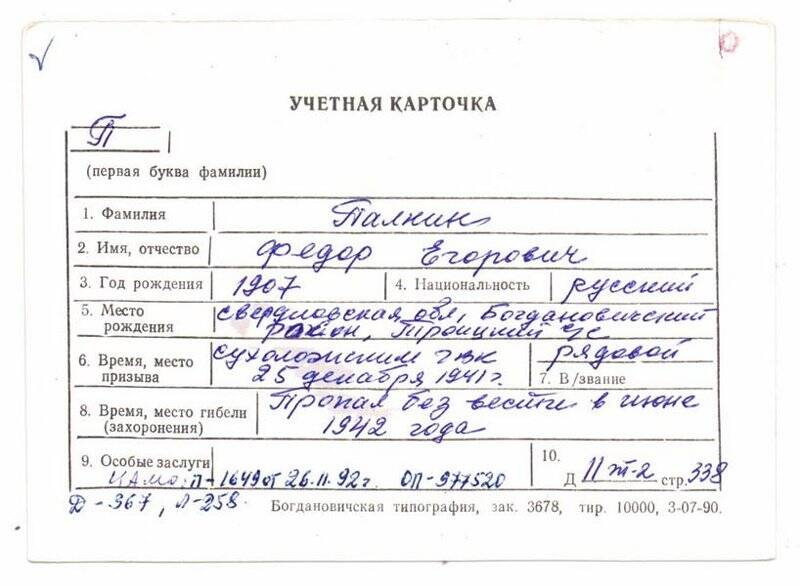 УЧЕТНАЯ КАРТОЧКА
П
(первая буква фамилии)
1. Фамилия Палкин
2. Имя, отчество Федор Егорович
3. Год рождения 1907 4. Национальность русский
5. Место рождения свердловская обл, Богдановичский
район, Троицкий с/с
6. Время, место призыва сухоложским гвк
25 декабря 1941г.
рядовой
7. В/звание
8. Время, место гибели (захоронения) Пропал без вести в июне
1942 года
9. Особые заслуги
ЦАМО: П-1649 от 26.11.92г. ОП-977520
10.
Д II т-2 стр. 338
Д-367, Л-258.
Богдановичская типография, зак. 3678, тир. 10000, 3-07-90.